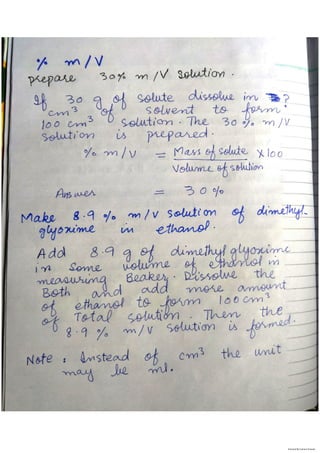 % m/V
prepare 30% m/V Solution.
If 30 g of solute dissolve in ?
cm³ of solvent to form
100 cm³ solution. The 30% m/V
solution is prepared.
% m/V = Mass of solute / Volume of solution × 100
Answer = 30%
Make 8.9% m/V solution of dimethyl-
glyoxime in ethanol.
Add 8.9 g of dimethylglyoxime
in some volume of ethanol in
measuring Beaker. Dissolve the
Both and add more amount
of ethanol to form 100 cm³
of Total solution. Then the
8.9% m/V solution is formed.
Note : Instead of cm³ the unit
may be ml.